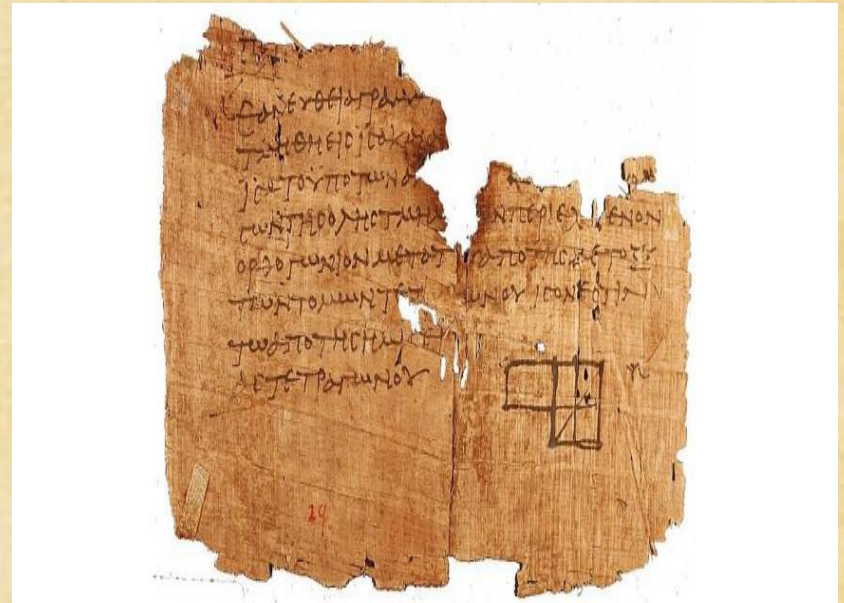 ΕΑΝΕΥΘΕΙΑΓΡΑΜΜ
ΤΜΗΘΗΕΙϹΙϹΑΚΑΙΑΝ
ΙϹΑΤΟΥΠΟΤΩΝΑ
ϹΩΝΤΗϹΟΛΗϹΤΜΗΜ ΝΠΕΡΙΕΧ ΜΕΝΟΝ
ΟΡΘΟΓΩΝΙΟΝΜΕΤΑΤ ΑΠΟΤΗϹΜΕΤΟΞΥ
ΤΩΝΤΟΜΩΝΤΕΤ ΩΝΟΥΙϹΟΝΕϹΤΙΝ
ΤΩΑΠΟΤΗϹΗΜΙϹ
ΑϹΤΕΤΡΑΓΩΝΟΥ
29